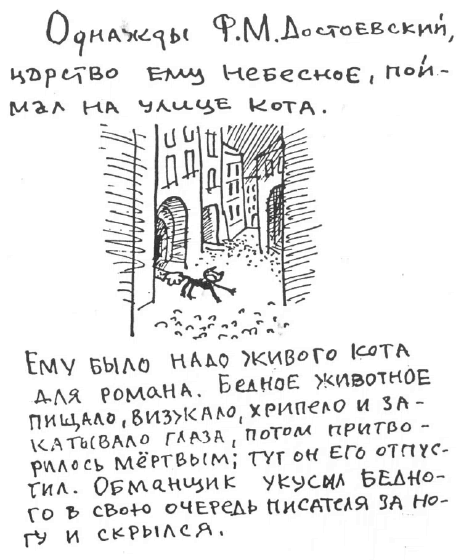 Однажды Ф.М.Достоевский,
царство ему небесное, пой-
мал на улице кота.
Ему было надо живого кота
для романа. Бедное животное
пищало, визжало, хрипело и за-
катывало глаза, потом притво-
рилось мёртвым; тут он его отпус-
тил. Обманщик укусил бедно-
го в свою очередь писателя за но-
гу и скрылся.